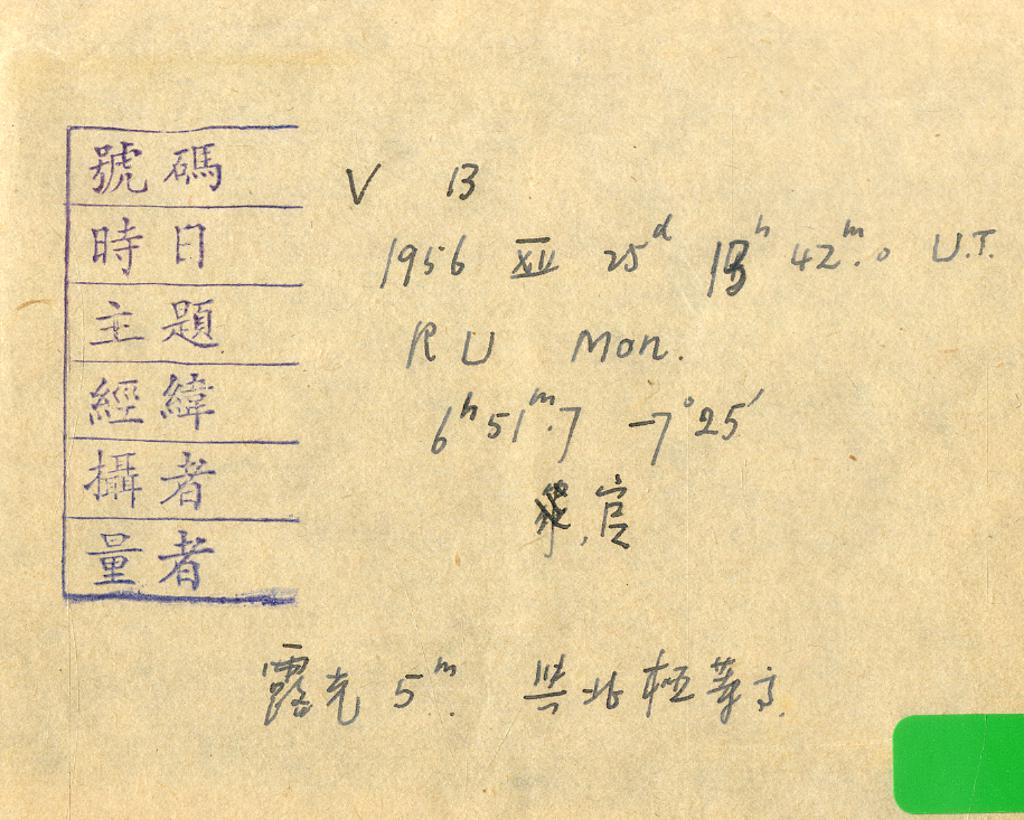 號碼 V B
時日 1956 XII 25d h 42m.0 U.T.
主題 RU Mon.
經緯 6h51m.7 -7°25′
攝者 官
量者
露光 5m. 北極